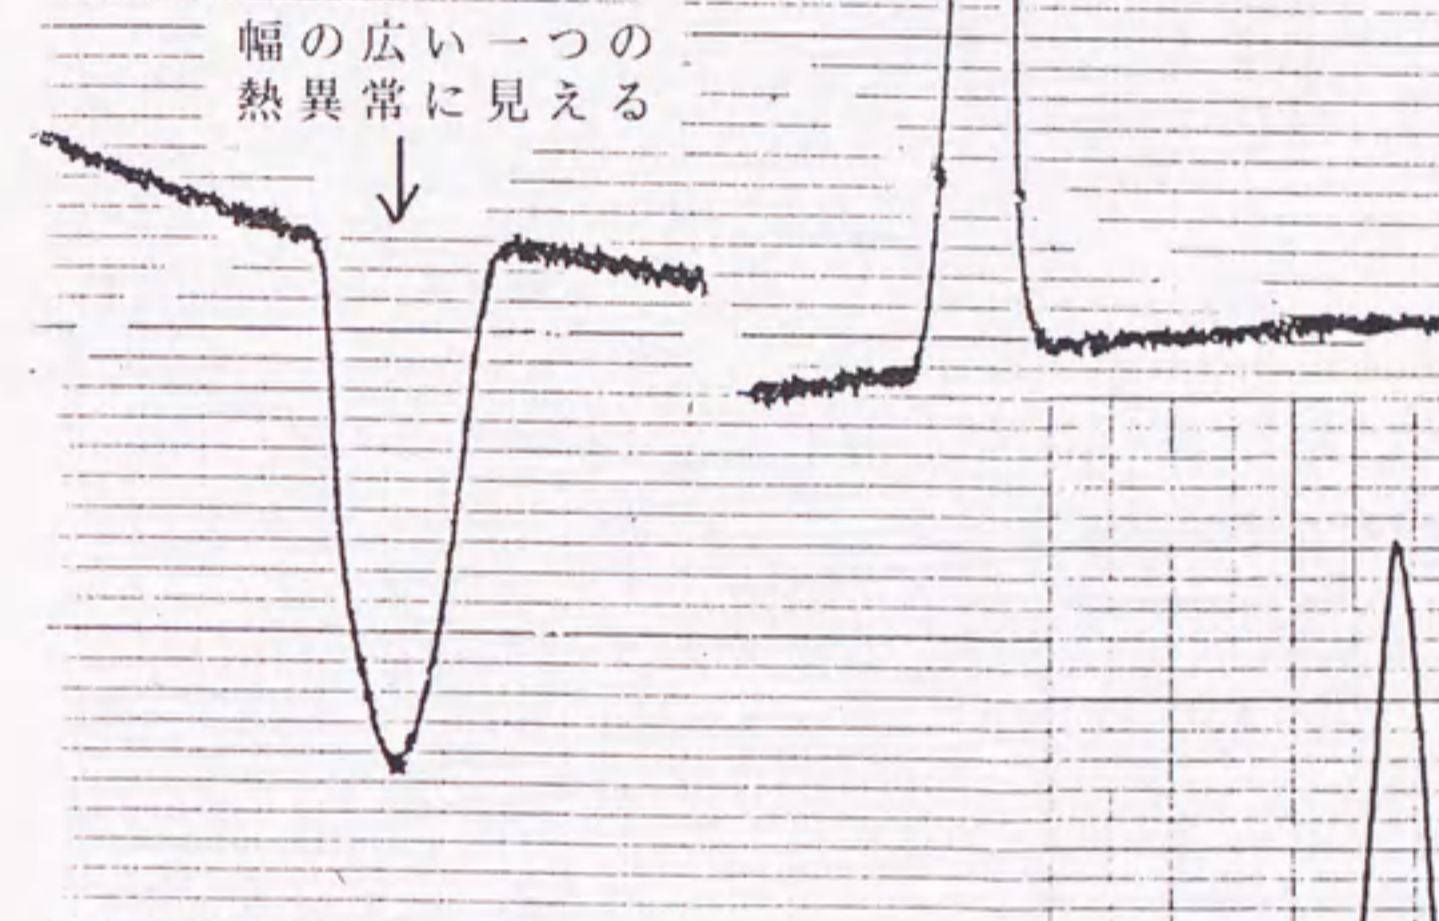 幅の広い一つの
熱異常に見える